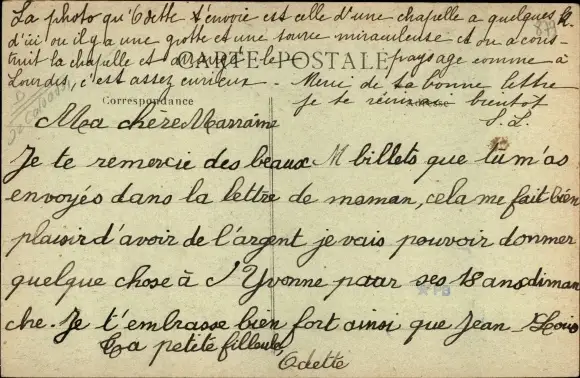 La photo qu'Odette t'envoie est celle d'une chapelle a quelques k
d'ici ou il y a une grotte et une source miraculeuse et ou a cons-
truit la chapelle et le paysage comme à
Lourdes, c'est assez curieux. Merci de ta bonne lettre
je te bientôt
S. L.
CARTE POSTALE
Correspondance
Adresse
Ma chère Marraine
Je te remercie des beaux billets que tu m'as
envoyés dans la lettre de maman, cela me fait bien
plaisir d'avoir de l'argent je vais pouvoir donner
quelque chose à Yvonne paar ses 18 ans diman
che. Je t'embrasse bien fort ainsi que Jean-Louis
Ta petite filleule
Odette